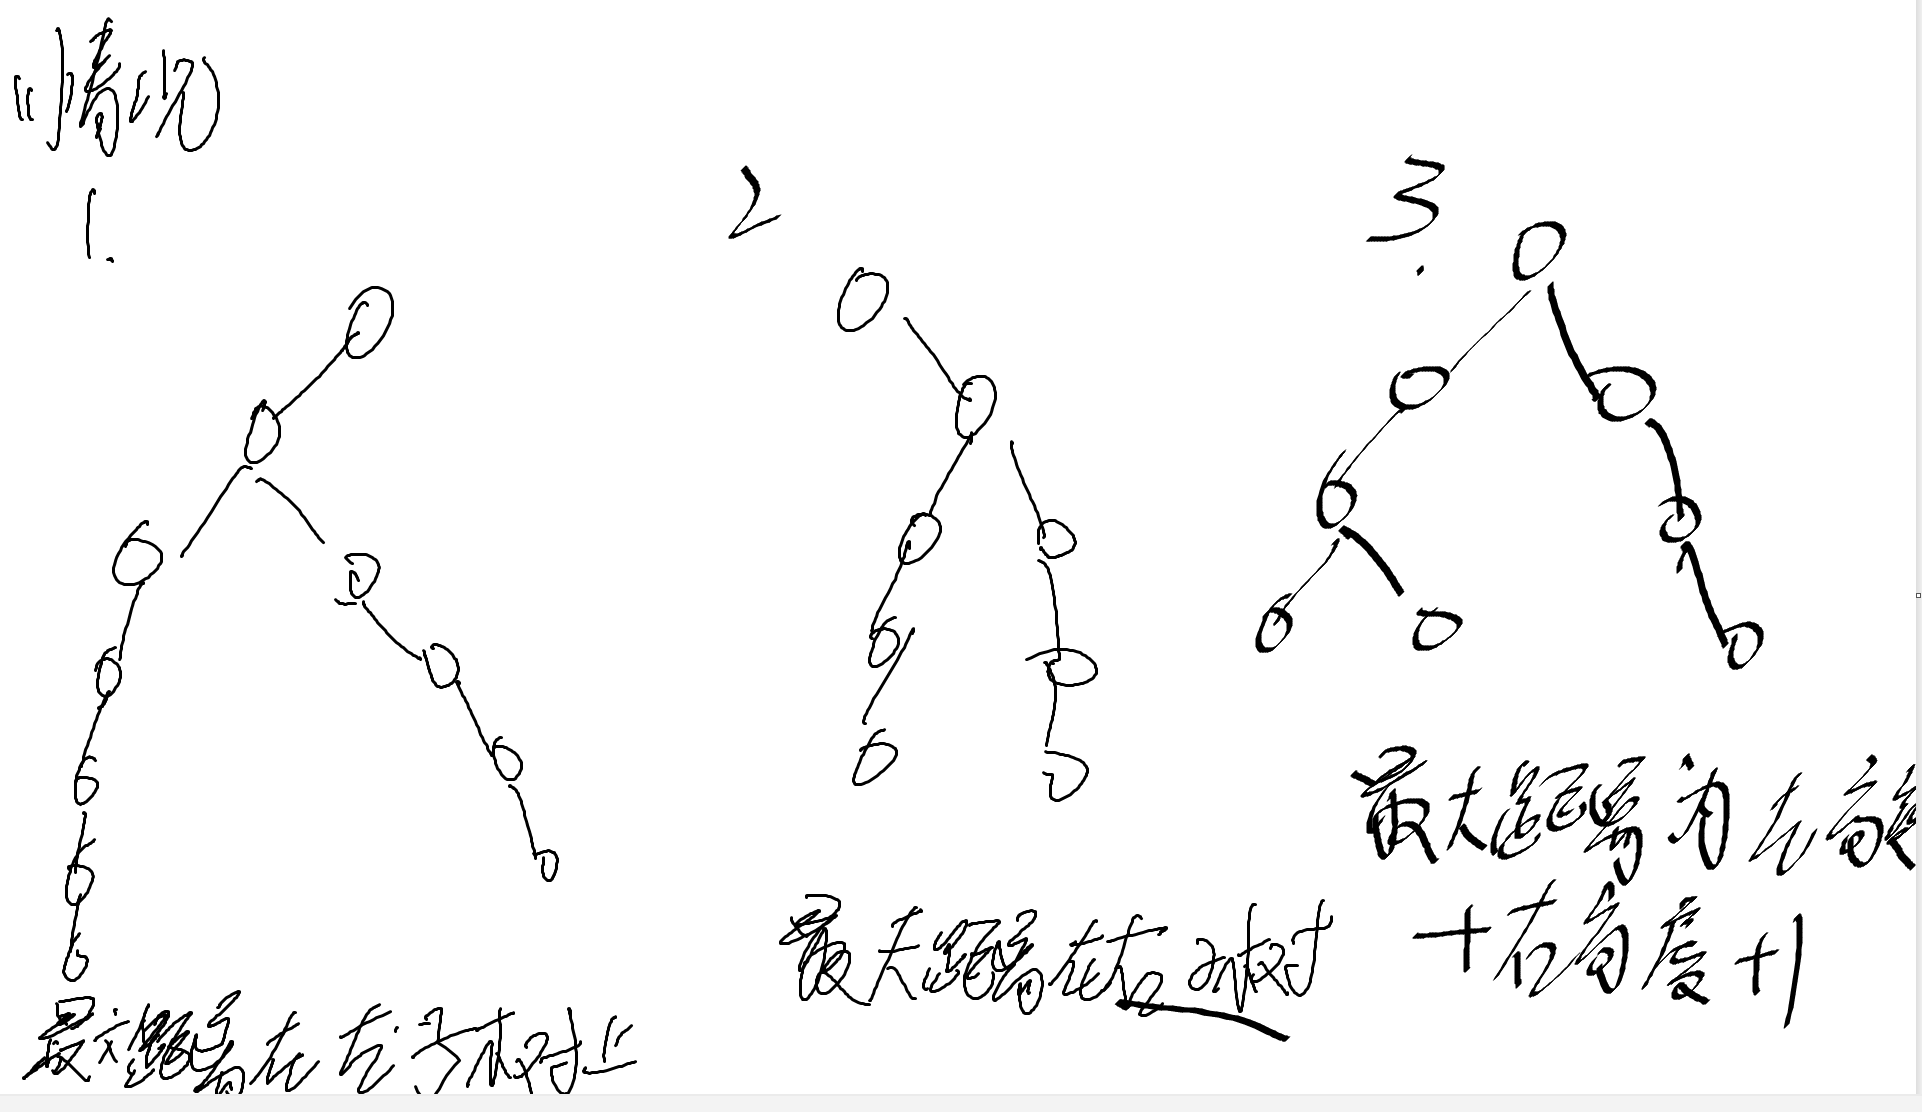 情况
1.
2
3.
最大距离在左子树上
最大距离在右子树
最大距离为左高度
+右高度+1